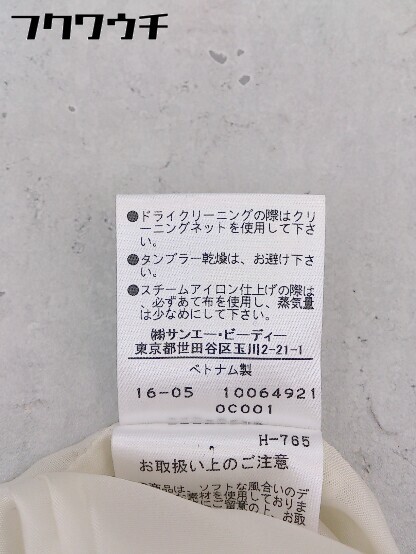 フクワウチ
●ドライクリーニングの際はクリ
ーニングネットを使用して下さ
い。
●タンブラー乾燥は、お避け下さ
い。
●スチームアイロン仕上げの際は
、必ずあて布を使用し、蒸気量
は少なめにして下さい。
㈱サンエー・ビーディー
東京都世田谷区玉川2-21-1
ベトナム製
16-05 10064921
0C001
H-765
お取扱い上のご注意
商品は、ソフトな風合いのデ
素材を使用しておりま
にご留意の上、お取